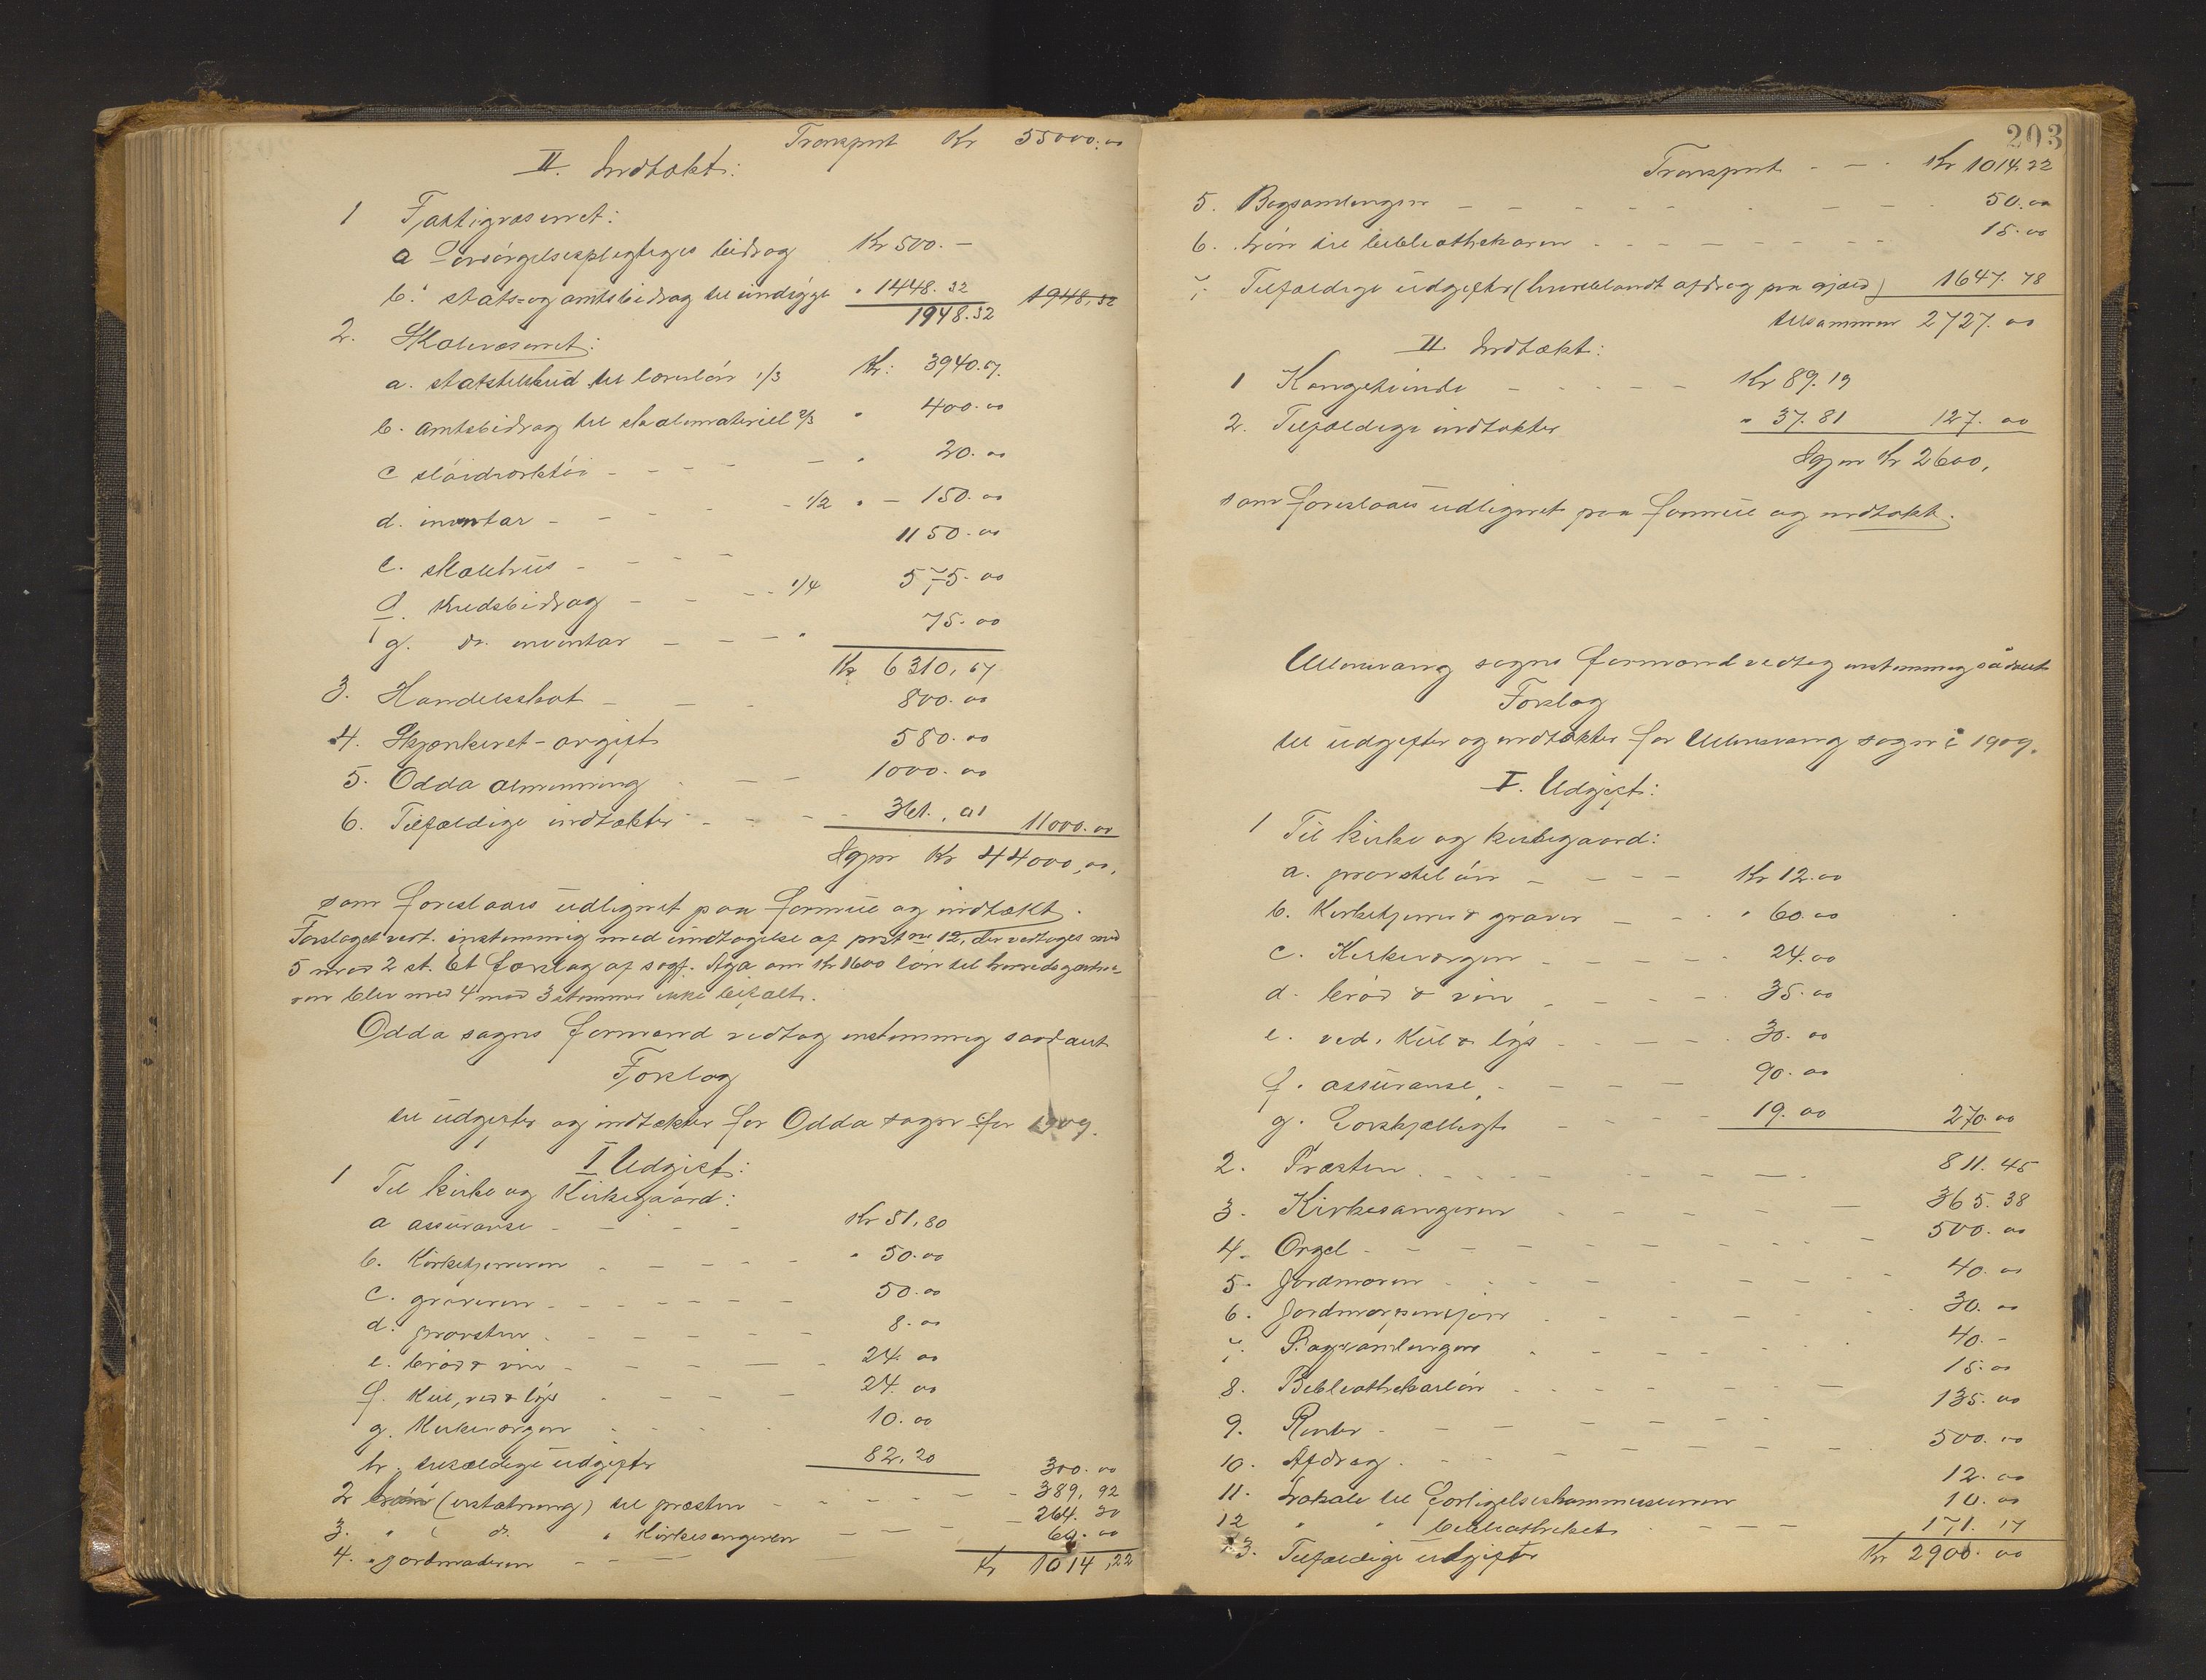 Transport Kr 55000.00
II. Indtækt:
1 Fattigvæsenet:
a Forsørgelsespligtiges bidrag Kr 500.-
b. stats- og amtsbidrag til sindsyge " 1448.32 1948,32
1948.32
2. Skolevæsenet:
a. statstilskud til lærerløn 1/3 Kr: 3940.67.
b. amtsbidrag til skolemateriell 2/3 " 400.00
c sløidværktøi - - - - " 20.00
d. inventar - - - - 1/2 " - 150.00
e. skolehus - - - 1150.00
f. Kredsbidrag - - - - 1/4 575.00
g. do. inventar - - - " 75.00
Kr 6310,67
3. Handelsskat - - - 800.00
4. Skjænkeret-avgift 580.00
5. Odda almenning - - - 1000.00
6. Tilfældige indtækter - - - - 361.,01 11000.00
Igjen Kr 44000,00,
som foreslaaes udlignet paa formue og indtækt.
Forslaget vedt. enstemmig med undtagelse af post no 12, der vedtoges med
5 mod 2 st. Et forslag af sogf. Aga om Kr 1600 løn til herredsgartne-
ren blev med 4 mod 3 stemmer ikke bifaldt.
Odda sogns formænd vedtog enstemmig saadant
Forslag
til udgifter og indtækter for Odda sogn for 1909.
I Udgift:
1 Til kirke og Kirkegaard:
a assuranse - - - - Kr 51,80
b. Kirketjeneren - - - - - " 50.00
c. graveren - - - - - - - 50.00
d. provsten - - - - - - 8.00
e. brød & vin - - - - - 24.00
f. Kul, ved & lys - - - - 24.00
g. Kirkevergen - - - - 10.00
h. tilfældige udgifter 82,20 300.00
2 (erstatning) til præsten - - - - - - 389,92
3. " ( do. " Kirkesangeren - - - - 264.30
4. " jordmoderen - - - 60.00
Kr 1014,22
203
Transport - - - Kr 1014.22
5. Bogsamlingen - - - - - - - - 50.00
6. Løn til bibliothekaren - - - - - - - - 15.00
7. Tilfældige udgifter (hvoriblandt afdrag paa gjæld) 1647.78
tilsammen 2727.00
II Indtækt:
1 Kongetiende - - - - - Kr 89.19
2. Tilfældige indtækter " 37.81 127.00
Igjen Kr 2600,
som foreslaaes udlignet paa formue og indtækt.
Ullensvang sogns formænd vedtog enstemmig sådant
Forslag
til udgifter og indtækter for Ullensvang sogn i 1909.
I. Udgift:
1 Til kirke og kirkegaard:
a. provsteløn - - - - Kr 12.00
b. Kirketjener & graver - - - " 60.00
c. Kirkevergen - - - - - 24.00
d. brød & vin - - - - - 35.00
e. ved, Kul & lys - - - - - 30.00
f. assuranse - - - - - 90.00
g. Forskjelligt - - - - 19.00 270.00
2. Præsten - - - - - - - - 811.45
3. Kirkesangeren - - - - - - 365.38
4. Orgel - - - - - - - - - 500.00
5. Jordmoren - - - - - - - - 40.00
6. Jordmorpensjon - - - - - - 30.00
7. Bogsamlingen - - - - - - 40.-
8. Bibliothekarløn - - - - - - 15.00
9. Renter - - - - - - - - 135.00
10. Afdrag - - - - - - - - 500.00
11. Lokale til Forligelseskommissionen 12.00
12 " " bibliotheket - - - - 10.00
13. Tilfældige udgifter 171.17
Kr 2900.00